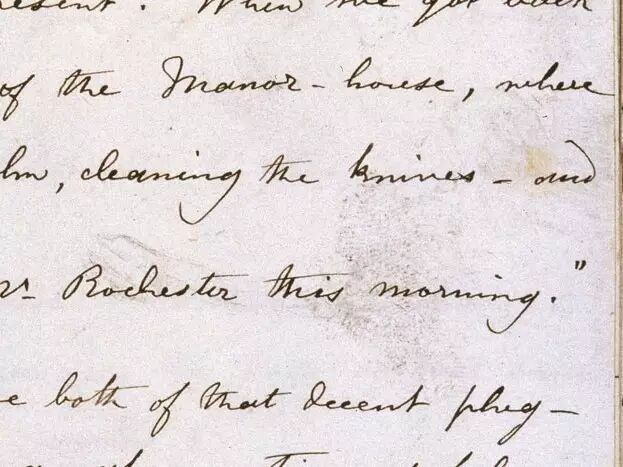 resent. When we got back
of the Manor-house, where
hn, cleaning the knives – and
r Rochester this morning."
e both of that decent phleg–